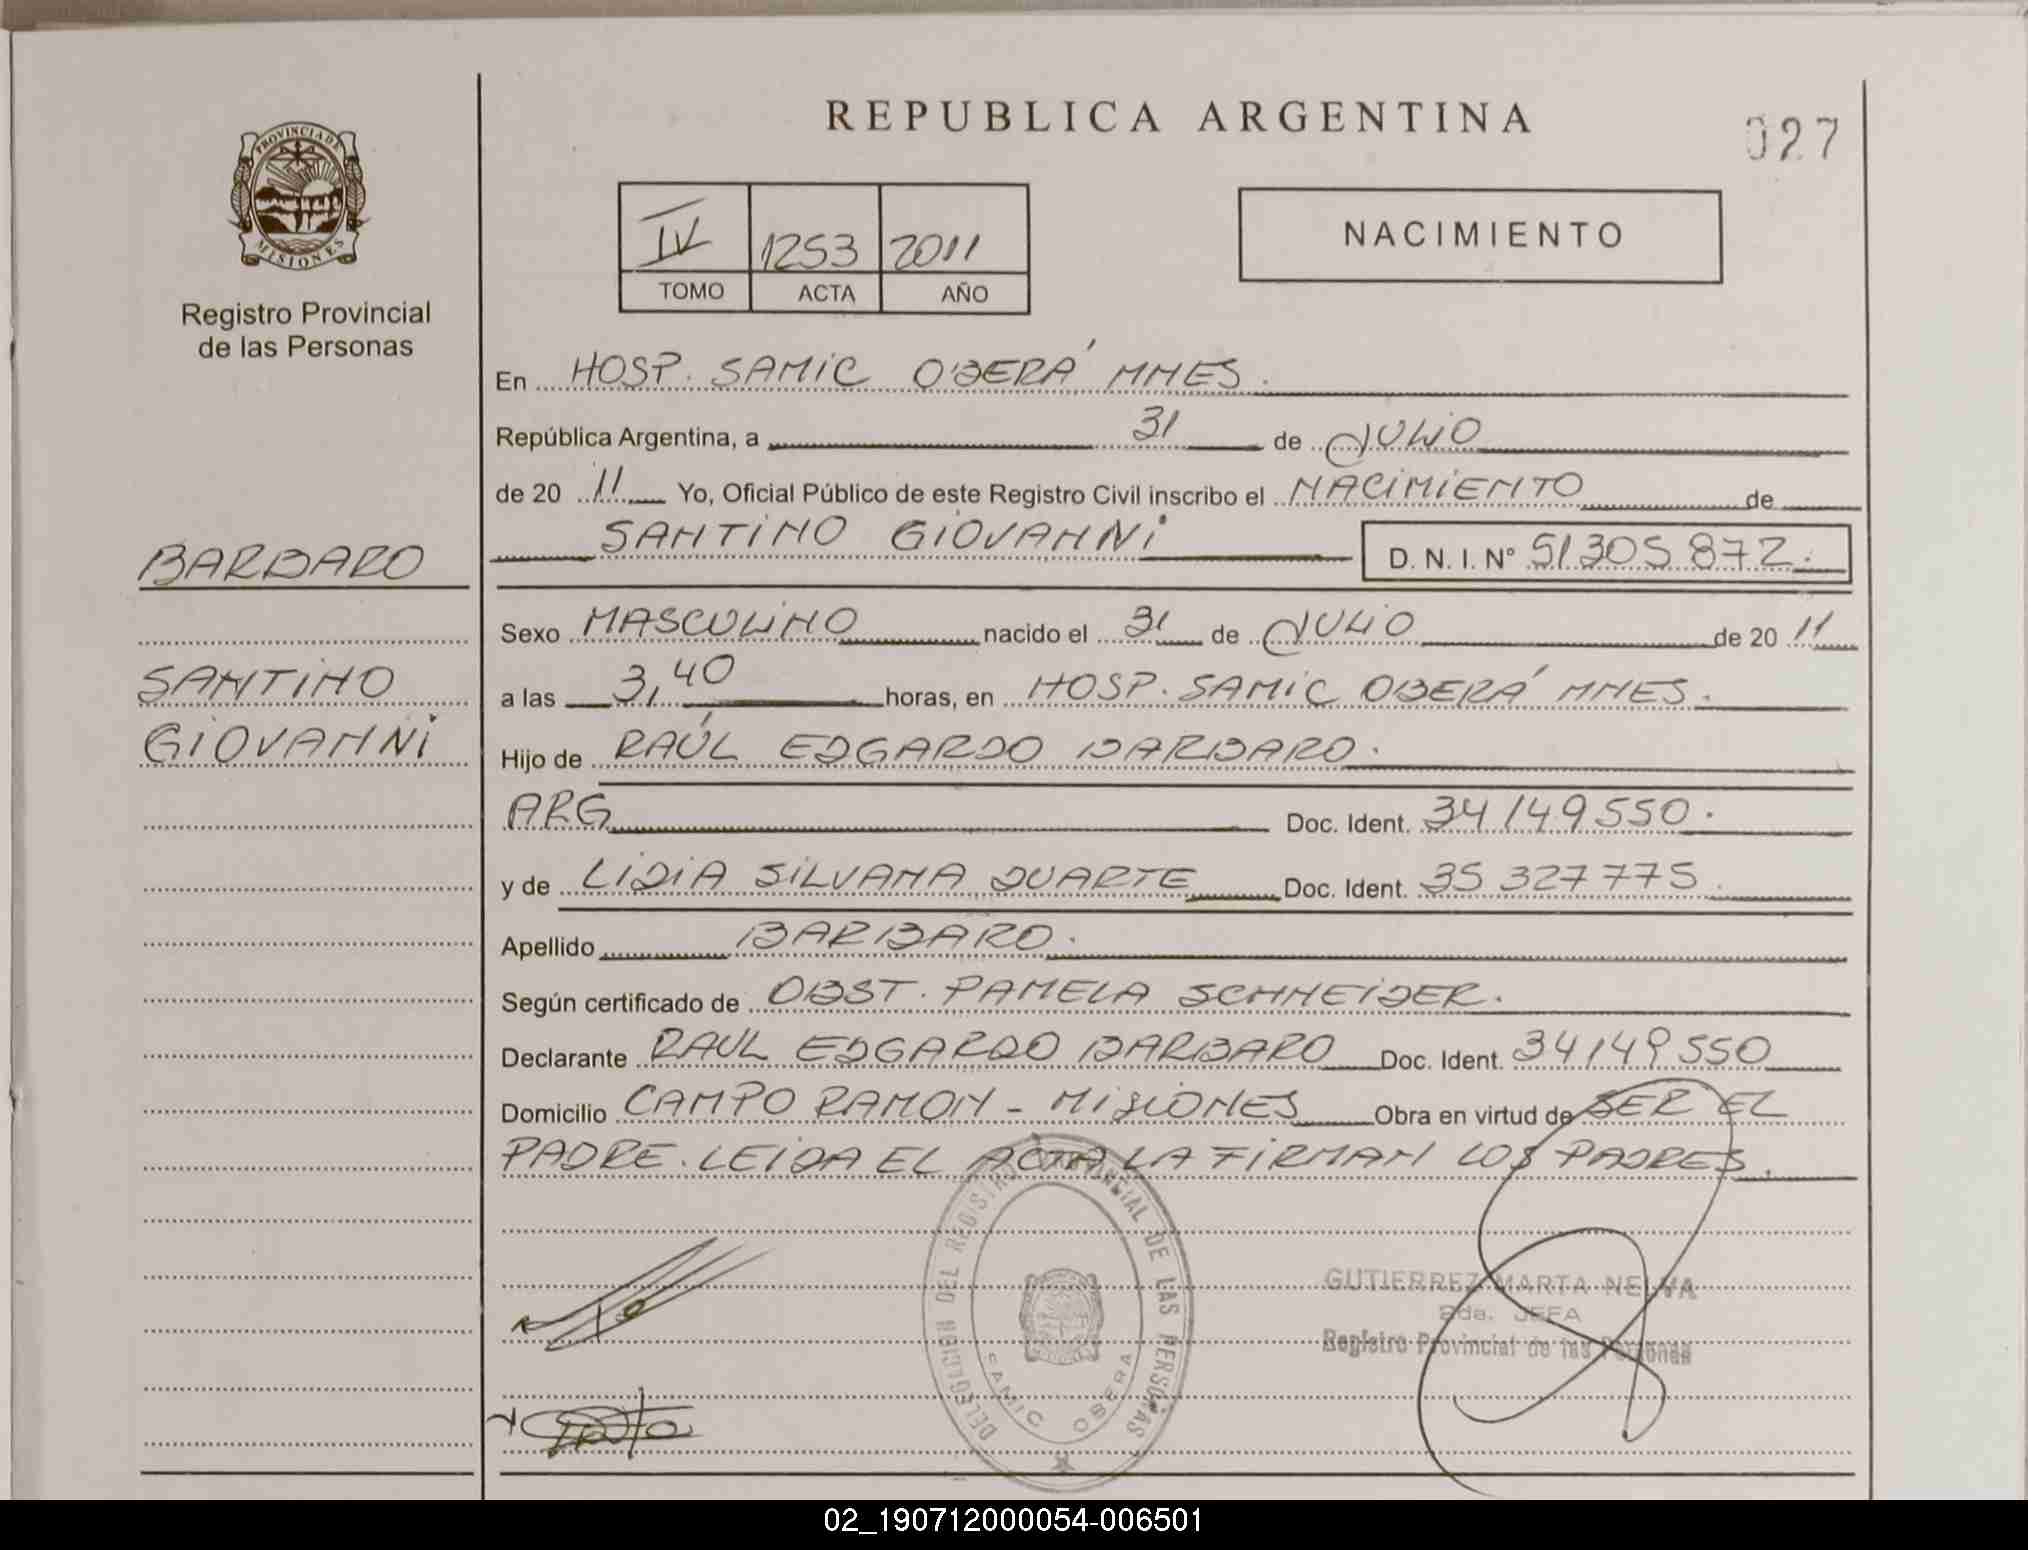 REPUBLICA ARGENTINA
027
PROVINCIA DE
MISIONES
Registro Provincial
de las Personas
IV 1253 2011
TOMO ACTA AÑO
NACIMIENTO
En HOSP. SAMIC OBERÁ MNES.
República Argentina, a 31 de JULIO
de 20 11 Yo, Oficial Público de este Registro Civil inscribo el NACIMIENTO de
SANTINO GIOVANNI D. N. I. N° 51305872.
BARBARO
SANTINO
GIOVANNI
Sexo MASCULINO nacido el 31 de JULIO de 20 11
a las 3,40 horas, en HOSP. SAMIC OBERÁ MNES.
Hijo de RAÚL EDGARDO BARBARO.
ARG Doc. Ident. 34149550.
y de LIDIA SILVANA DUARTE Doc. Ident. 35 327775.
Apellido BARBARO.
Según certificado de OBST. PAMELA SCHNEIDER.
Declarante RAUL EDGARDO BARBARO Doc. Ident. 34149550
Domicilio CAMPO RAMON - MISIONES Obra en virtud de SER EL
PADRE. LEIDA EL ACTA LA FIRMAN LOS PADRES.
DELEGACION DEL REGISTRO PROVINCIAL DE LAS PERSONAS
SAMIC OBERA
GUTIERREZ MARTA NELVA
2da. JEFA
Registro Provincial de las Personas
02_190712000054-006501